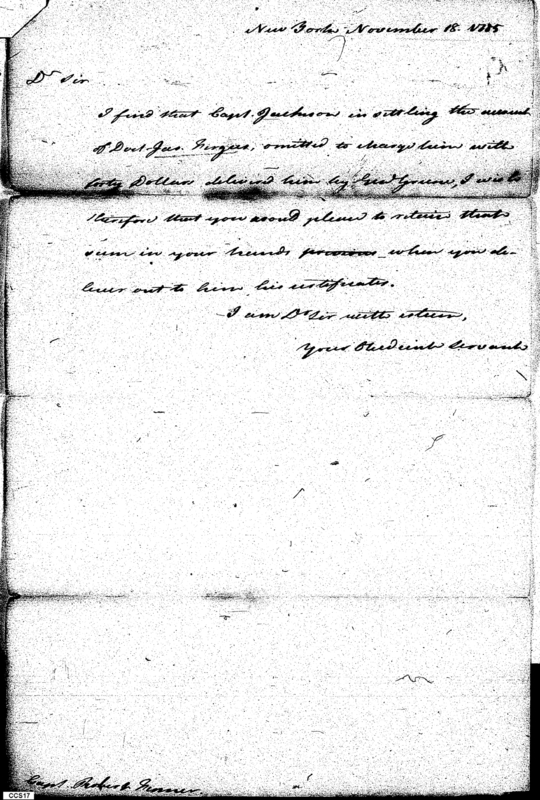 New York November 18. 1785
Dr Sir
I find that Capt. Jackson in settling the account
of Doct. Jas. Fergus, omitted to charge him with
forty Dollars delivered him by Genl Greene, I wish
therefore that you would please to retain that
sum in your hands previous when you de-
liver out to him his certificates.
I am Dr Sir with esteem,
Your Obedient Servant
Capt. Robert
CCS17